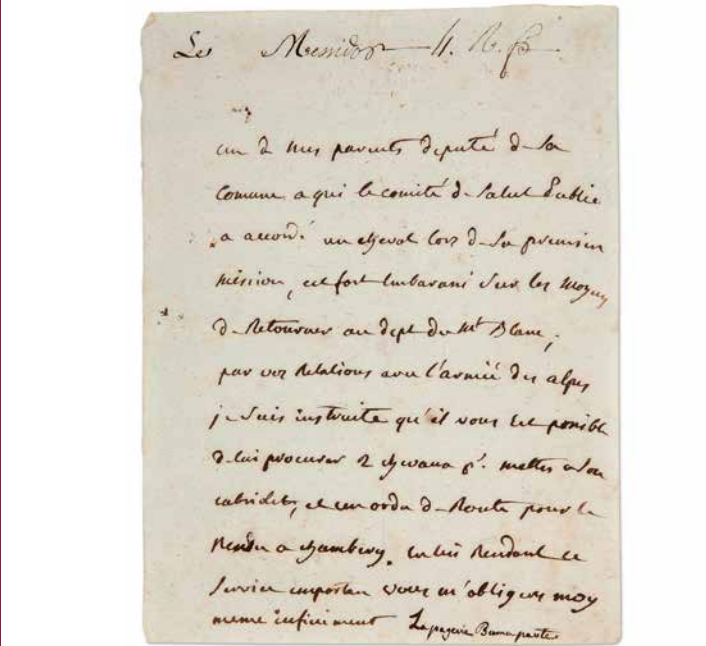 Le Messidor 4. R. fse
un de mes parents deputé de sa
Comune a qui le comité de Salut Public
a accordé un cheval lors de sa premiere
mission, est fort Embarassé Sur les moyens
de Retourner au dept du Mt Blanc,
par vos Relations avec l'armée des alpes
je suis instruite qu'il vous Est possible
de lui procurer 2 chevaux pr. mettre a son
cabriolet, et un ordre de Route pour se
Rendre a chambery. en lui Rendant ce
Service important vous m'obligerez moy
meme infiniment Lapagerie Buonaparte